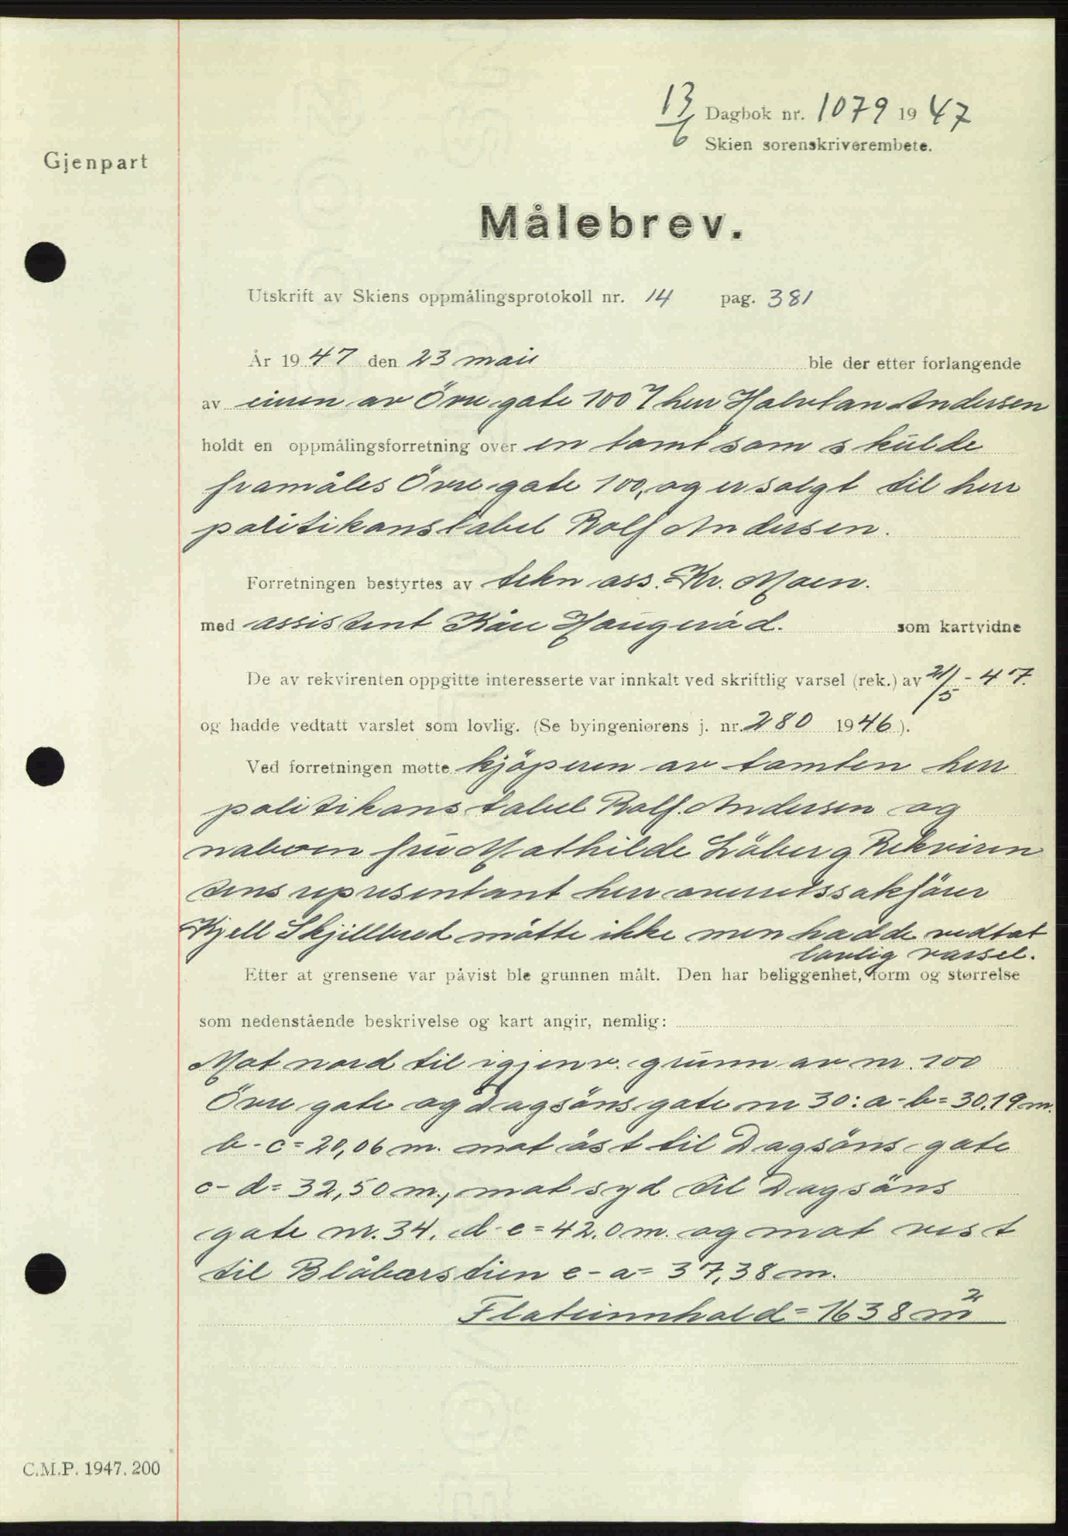 13/6 Dagbok nr. 1079 1947
Skien sorenskriverembete.
Gjenpart
Målebrev.
Utskrift av Skiens oppmålingsprotokoll nr. 14 pag. 381
År 1947 den 23 mai ble der etter forlangende
av eieren av Övre gate 100 herr Halvtan Andersen
holdt en oppmålingsforretning over en tomt som skulde
framåles Övre gate 100, og er solgt til herr
politikonstabel Rolf Andersen.
Forretningen bestyrtes av tekn ass. Kr. Moen.
med assistent Kåre Haugerød. som kartvidne
De av rekvirenten oppgitte interesserte var innkalt ved skriftlig varsel (rek.) av 21/5 - 47.
og hadde vedtatt varslet som lovlig. (Se byingeniørens j. nr. 280 1946).
Ved forretningen møtte kjöperen av tomten herr
politikonstabel Rolf Andersen og
naboen fru Mathilde Löberg Rekviren
tens representant herr overrettssakförer
Kjell Skjillbred mötte ikke men hadde vedtat
lovlig varsel.
Etter at grensene var påvist ble grunnen målt. Den har beliggenhet, form og størrelse
som nedenstående beskrivelse og kart angir, nemlig:
Mot nord til igjenv. grunn av nr. 100
Övre gate og Dagsöns gate nr 30: a-b= 30,19 m.
b-c= 20,06 m. mot öst til Dagsöns gate
c-d= 32,50 m., mot syd til Dagsöns
gate nr. 34. d-e= 42.0 m. og mot vest
til Blåbærstien e-a= 37,38 m.
Flateinnhold= 1638 m²
C.M.P. 1947. 200